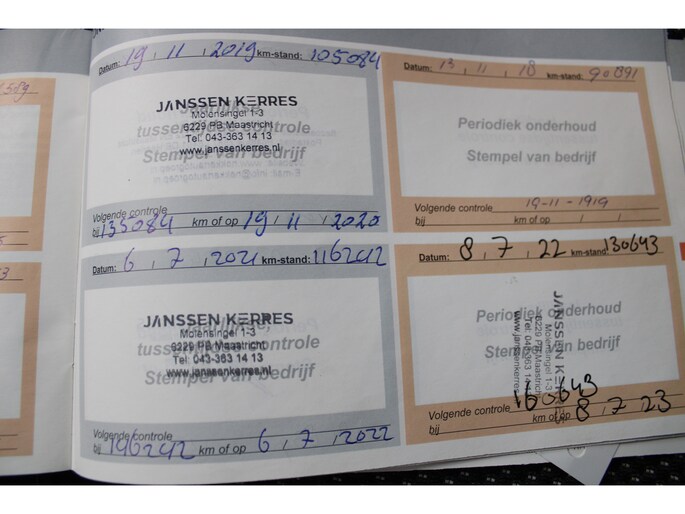 Datum: 19 , 11 , 2019 km-stand: 105084
JANSSEN KERRES
Molensingel 1-3
tussen controle
6229 PB Maastricht
Tel: 043-363 14 13
www.janssenkerres.nl
Stempel van bedrijf
Volgende controle
bij 135084 km of op 19 , 11 , 2020
Datum: 6 , 7 , 2021 km-stand: 116242
JANSSEN KERRES
Molensingel 1-3
tussen controle
6229 PB Maastricht
Tel: 043-363 14 13
www.janssenkerres.nl
Stempel van bedrijf
Volgende controle
bij 146242 km of op 6 , 7 , 2022
Datum: 13 , 11 , 18 km-stand: 90891
Periodiek onderhoud
Stempel van bedrijf
Volgende controle 19-11-1919
bij km of op / /
Datum: 8 , 7 , 22 km-stand: 130643
Periodiek onderhoud
Stempel van bedrijf
JANSSEN KERRES
Molensingel 1-3
6229 PB Maastricht
Tel: 043-363 14 13
www.janssenkerres
Volgende controle 160643
bij km of op 8 , 7 , 23